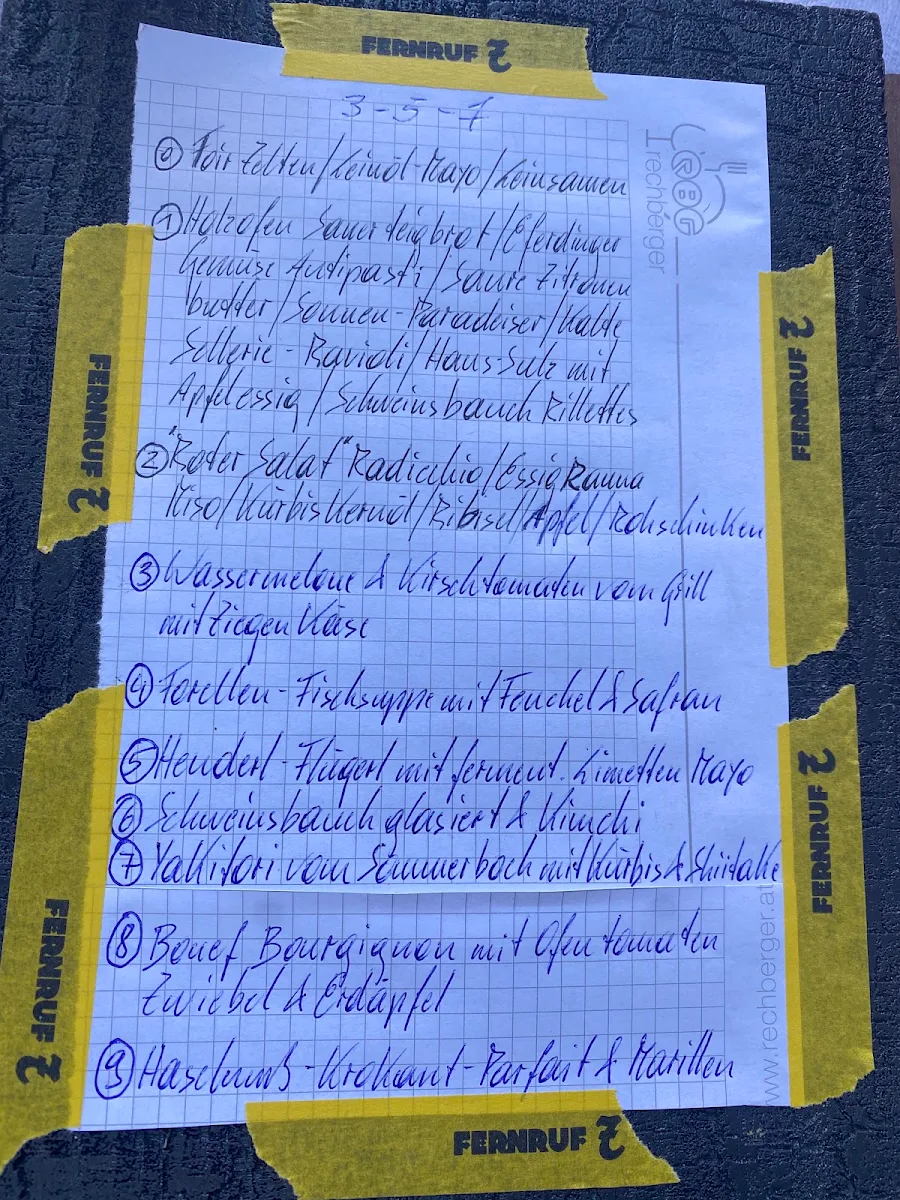 FERNRUF 7
3-5-7
rechberger
RBG
⓪ Foir Zelten/Leinöl-Mayo/Leinsamen
① Holzofen Sauerteigbrot/Eferdinger
Gemüse Antipasti/Saure Zitronen
butter/Sonnen-Paradeiser/Kalte
Sellerie-Ravioli/Haus-Sulz mit
Apfelessig/Schweinsbauch Rillettes
② "Roter Salat" Radicchio/Essig Rauna
Miso/Kürbiskernöl/Ribisel/Apfel/Rohschinken
③ Wassermelone & Kirschtomaten vom Grill
mit Ziegen Käse
④ Forellen-Fischsuppe mit Fenchel & Safran
⑤ Henderl-Flügerl mit ferment. Limetten Mayo
⑥ Schweinsbauch glasiert & Kimchi
⑦ Yakitori vom Sommerbock mit Kürbis & Shiitake
⑧ Bouef Bourgignon mit Ofentomaten
Zwiebel & Erdäpfel
⑨ Haselnuß-Krokant-Parfait & Marillen
www.rechberger.at
FERNRUF 7
FERNRUF 7
FERNRUF 7
FERNRUF 7
FERNRUF 7